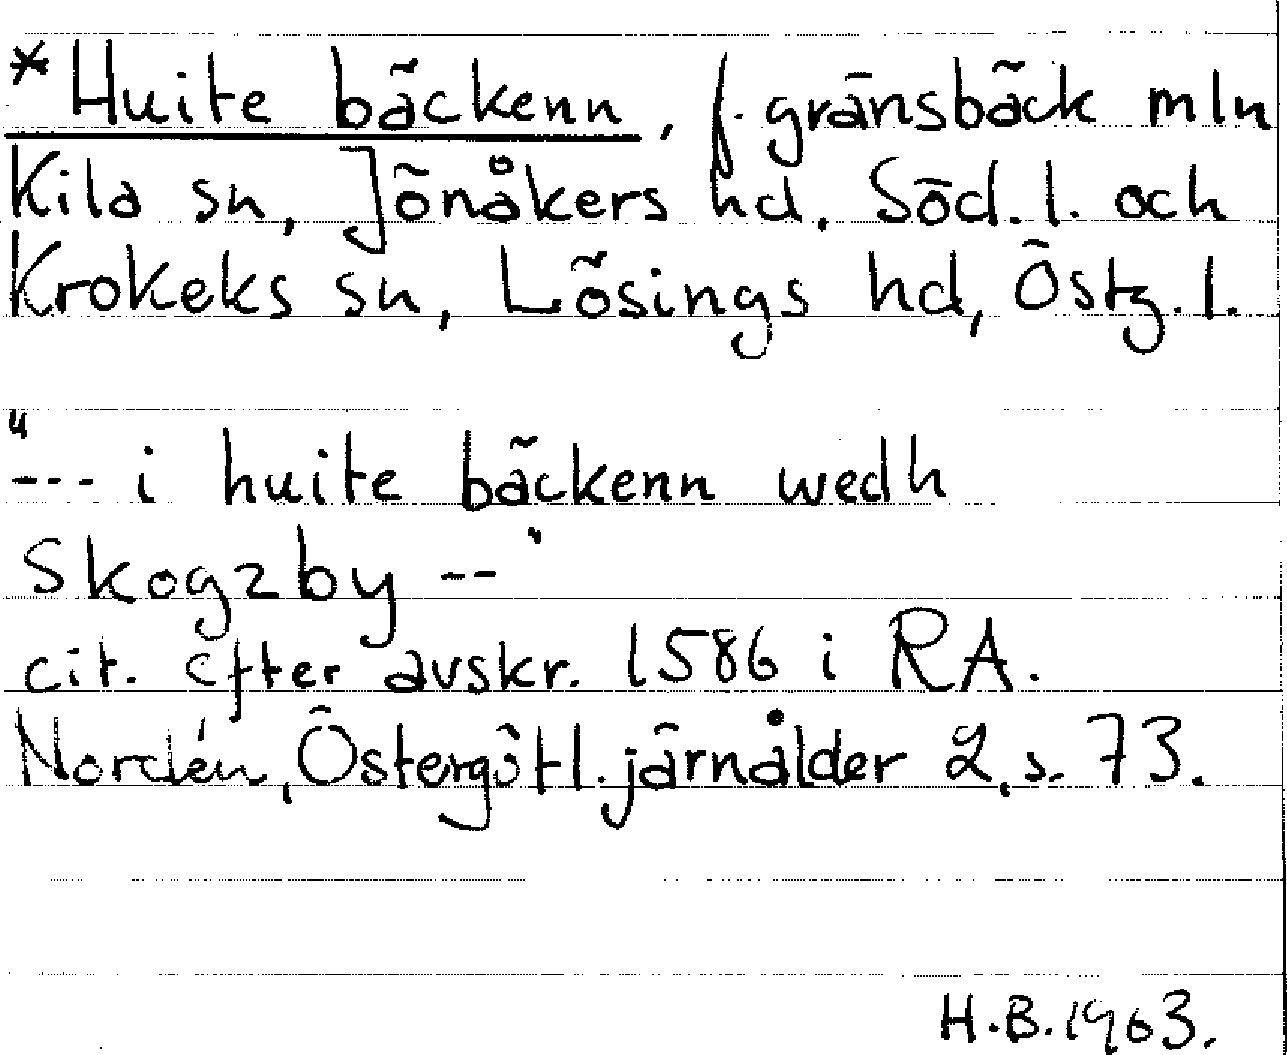 *Huite bäckenn, f. gränsbäck mln
Kila sn, Jönåkers hd. Söd. l. och
Krokeks sn, Lösings hd, Östg. l.
"--- i huite bäckenn wedh
Skogzby --"
cit. efter avskr. 1586 i RA.
Nordén, Östergötl. järnålder 2, s. 73.
H.B. 1963.